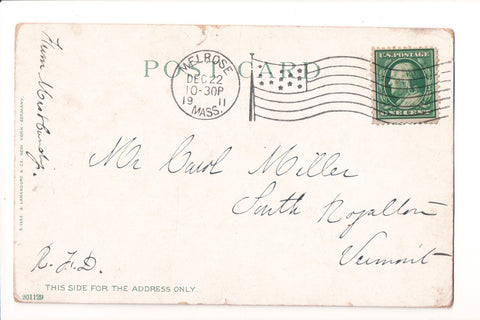 POST CARD
MELROSE
DEC 22
10-30P
19 11
MASS.
U.S. POSTAGE
ONE CENT
Mr Carol Miller
South Royalton
Vermont
R.F.D.
THIS SIDE FOR THE ADDRESS ONLY.
201129